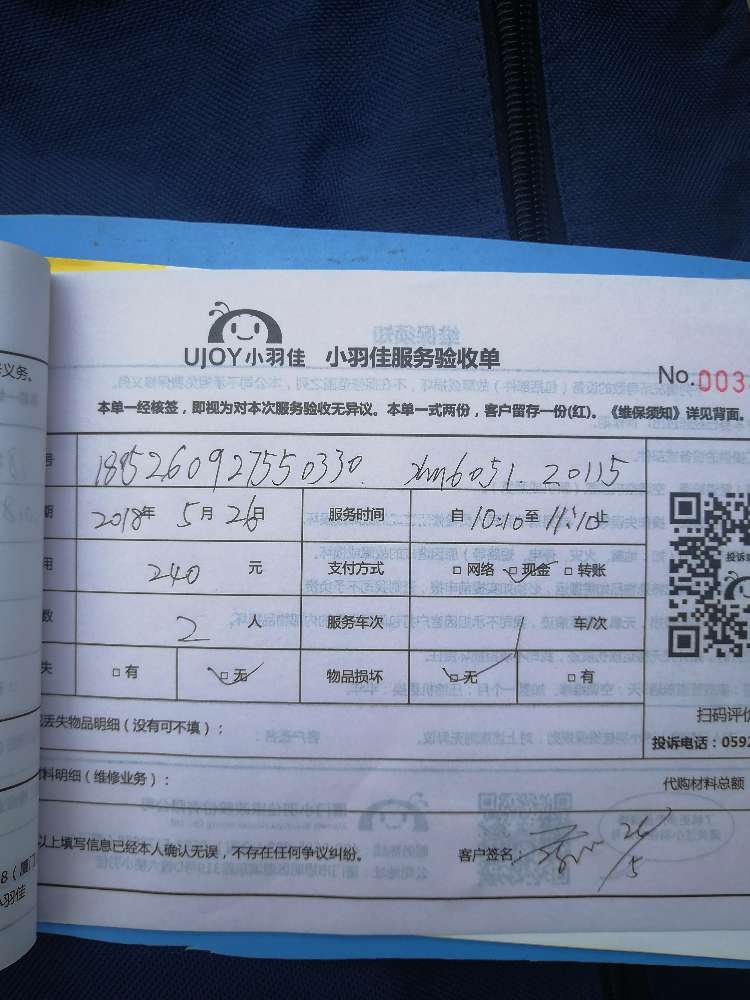 UJOY小羽佳 小羽佳服务验收单
No.003
本单一经核签，即视为对本次服务验收无异议。本单一式两份，客户留存一份(红)。《维保须知》详见背面。
义务。
号 188526092755 0330. xm6051.20115
期 2018年 5月 26日 服务时间 自 10:10至 11:10止
用 240 元 支付方式 □网络 ☑现金 □转账
数 2 人 服务车次 1 车/次
失 □有 ☑无 物品损坏 ☑无 □有
扫码评价
丢失物品明细（没有可不填）：
投诉电话：0592
料明细（维修业务）：
代购材料总额
以上填写信息已经本人确认无误，不存在任何争议纠纷。
客户签名： 26/5
8（厦门
小羽佳